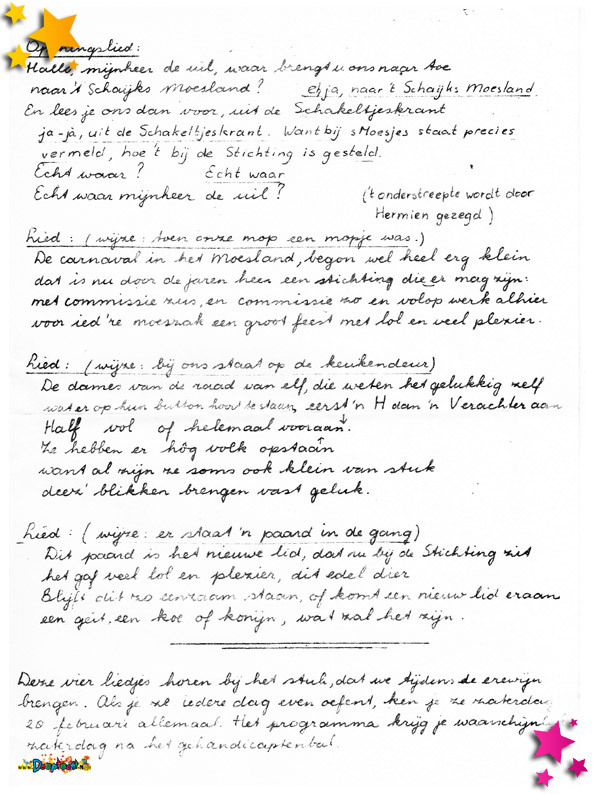 Openingslied:
Hallo, mijnheer de uil, waar brengt u ons naar toe
naar 't Schaijks Moesland? eh ja, naar 't Schaijks Moesland
En lees je ons dan voor, uit de Schakeltjeskrant
ja-ja, uit de Schakeltjeskrant. Want bij s Moesjes staat precies
vermeld, hoe 't bij de Stichting is gesteld.
Echt waar? Echt waar
Echt waar mijnheer de uil? ('t onderstreepte wordt door
Hermien gezegd)
Lied: (wijze: toen onze mop een mopje was.)
De carnaval in het Moesland, begon wel heel erg klein
dat is nu door de jaren heen een stichting die er mag zijn:
met commissie zus, en commissie zo en volop werk alhier
voor ied're moeszak een groot feest met lol en veel plezier.
Lied: (wijze: bij ons staat op de keukendeur)
De dames van de raad van elf, die weten het gelukkig zelf
wat er op hun button hoort te staan, eerst 'n H dan 'n Verachter aan
Half vol of helemaal vooraan.
Ze hebben er hôg volk opstaan
want al zijn ze soms ook klein van stuk
deez' blikken brengen vast geluk.
Lied: (wijze: er staat 'n paard in de gang)
Dit paard is het nieuwe lid, dat nu bij de Stichting zit
het gaf veel lol en plezier, dit edel dier
Blijft dit zo eenzaam staan, of komt een nieuw lid eraan
een geit, een koe of konijn, wat zal het zijn.
Deze vier liedjes horen bij het stuk, dat we tijdens de erewijn
brengen. Als je ze iedere dag even oefent, ken je ze zaterdag
20 februari allemaal. Het programma krijg je waarschijnl
zaterdag na het gehandicaptenbal.